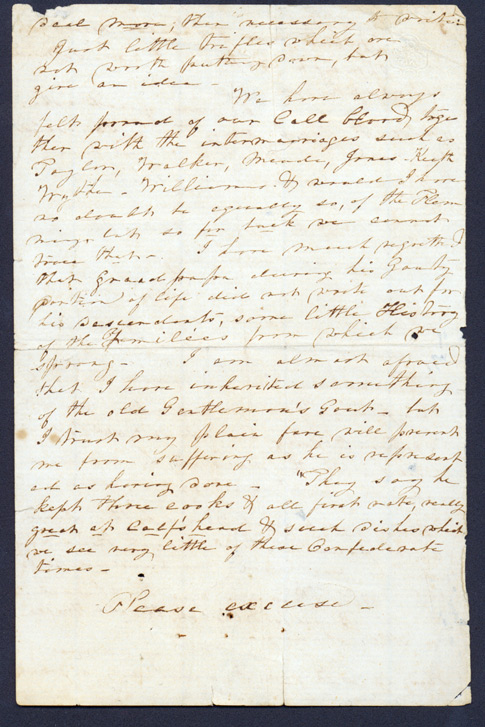 deal more, then necessary to write
Just little trifles which are
not worth putting down, but
give an idea -
We have always
felt proud of our Call blood, toge
ther with the intermarriages such as
Taylor, Walker, Meade, Jones - Keith
Wythe - Williams. & would I have
no doubt be equally so, of the Flem
mings but so far back we cannot
trace that -. I have much regretted
that Grandpapa during his Gouty
portion of life did not write out for
his descendants, some little History
of the Families from which we
sprong - I am almost afraid
that I have inherited something
of the old Gentleman's Gout - but
I trust my plain fare will prevent
me from suffering as he is represent
ed as having done - "They say he
kept three cooks & all first rate, really
great at Calf's head & such dishes which
we see very little of these Confederate
times -
Please excuse -